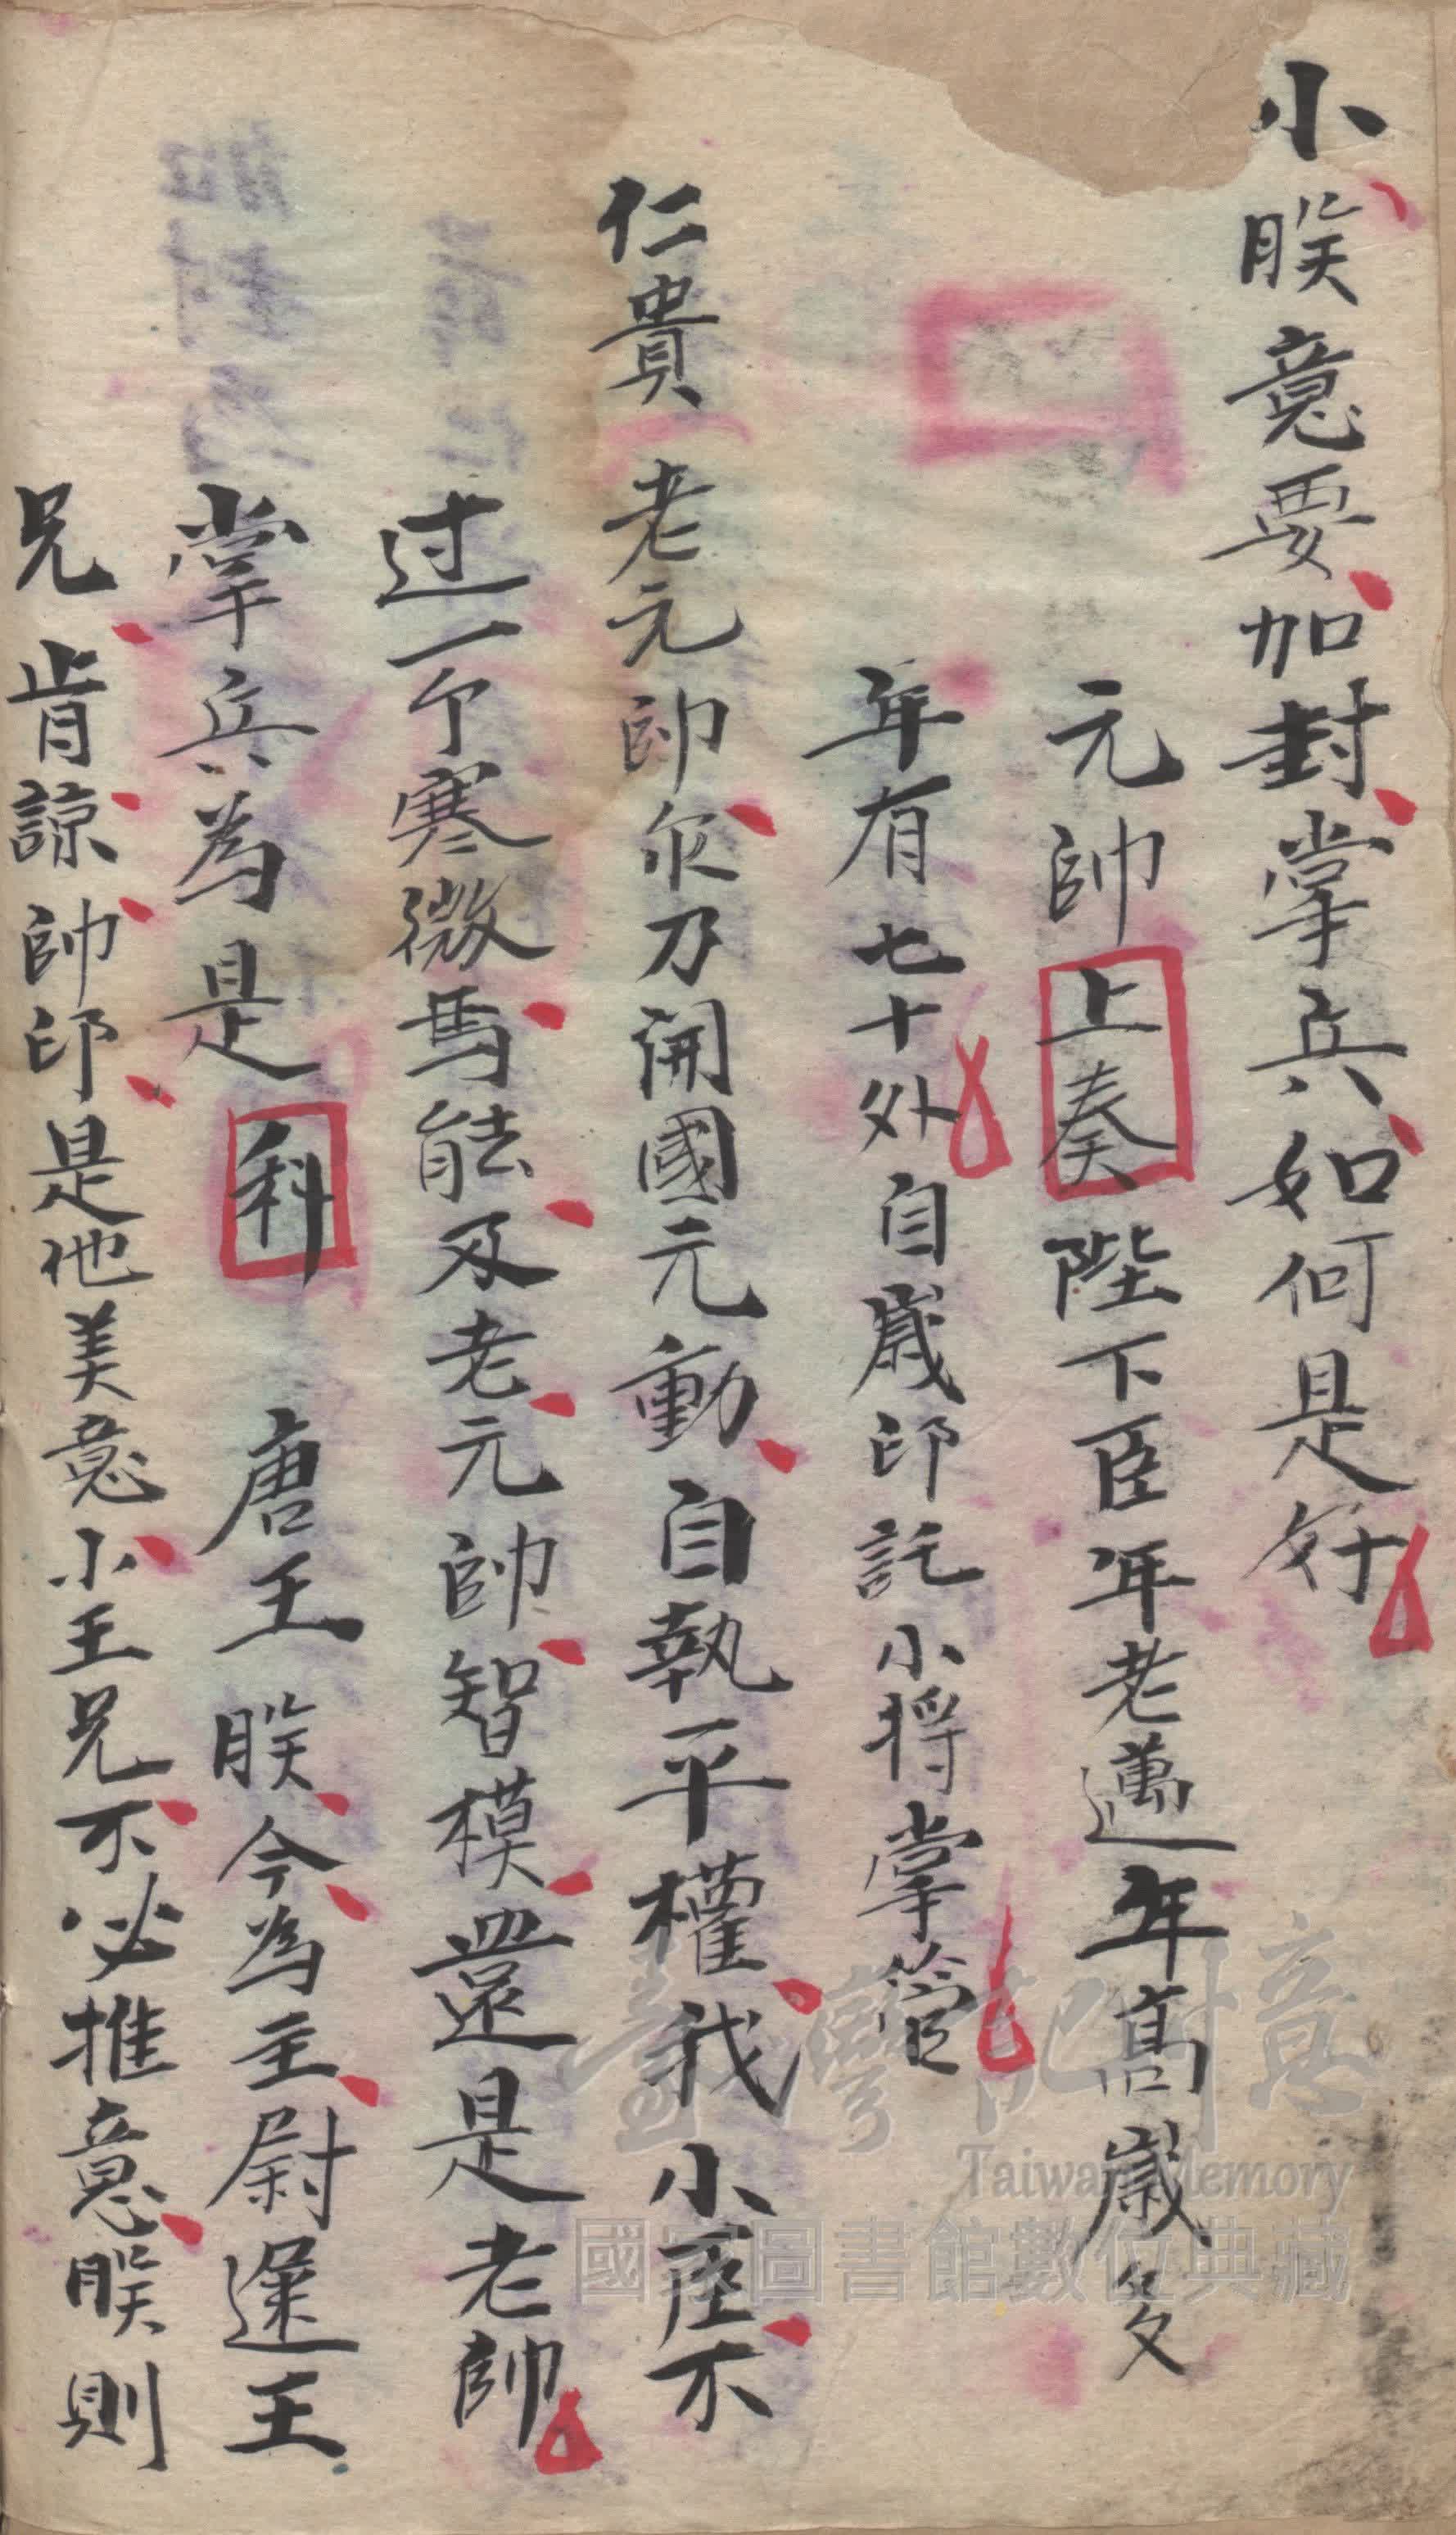 小朕意要加封掌兵如何是好
元帥上奏陛下臣年老邁年高歲多
年有七十外自歲印託小将掌管
仁貴老元帥尔乃開國元動自執平權我小座不
过一个寒微馬能及老元帥智模還是老帥
掌兵為是科唐王朕今為主尉遲王
兄肯諒帥印是他美意小王兄不必推意朕則
臺灣記憶
Taiwan Memory
國家圖書館數位典藏